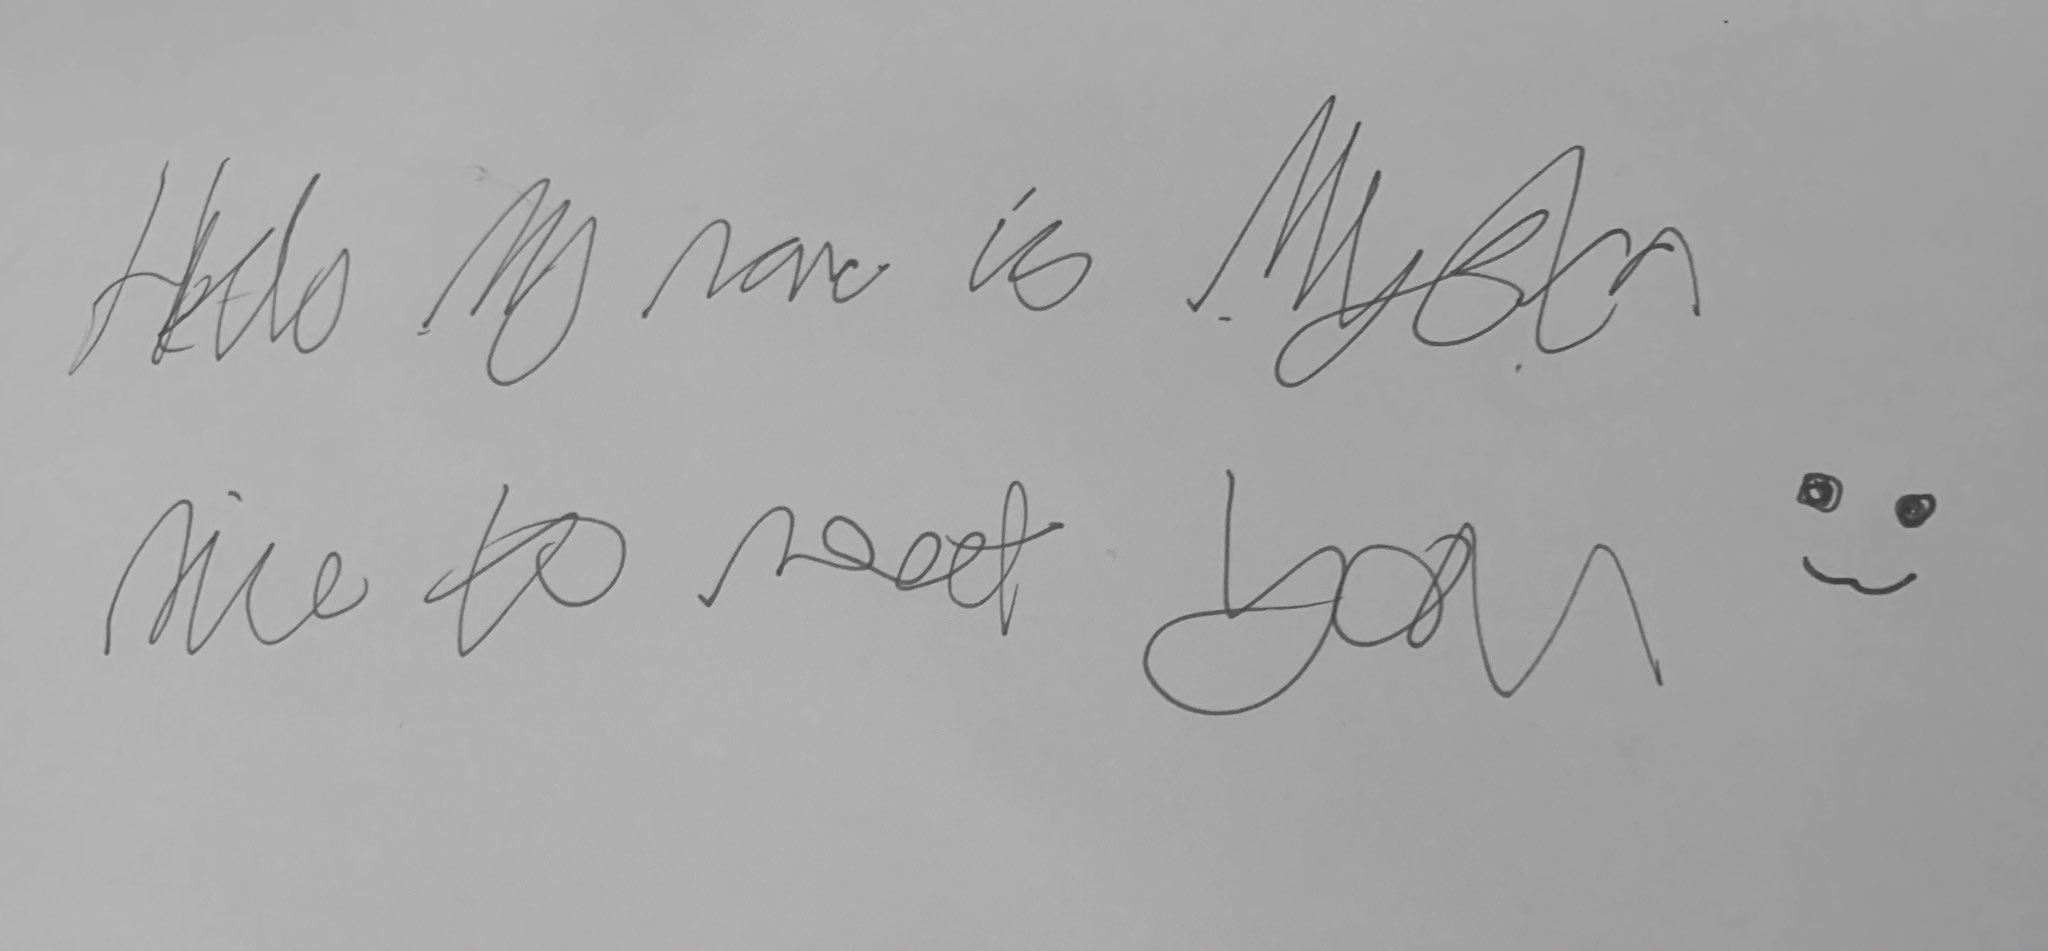 Hello My name is
nice to meet you